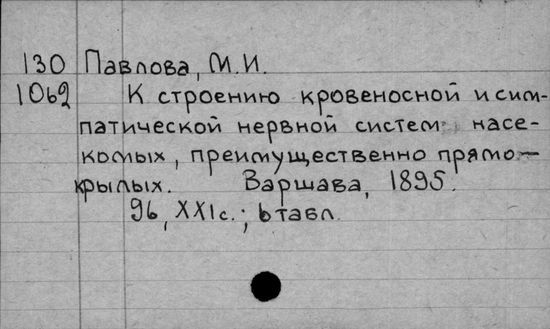 130 Павлова, М.И.
1062 К строению кровеносной и сим-
патической нервной систем насе-
комых, преимущественно прямо-
крылых. Варшава, 1895.
96, XXI с.; 6 табл.